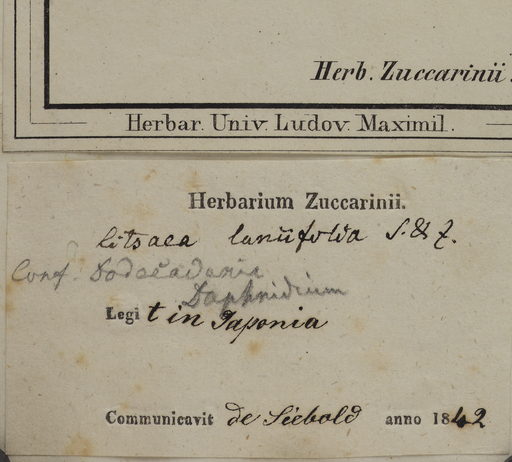 Herb. Zuccarinii.
Herbar. Univ. Ludov. Maximil.
Herbarium Zuccarinii.
Litsaea lanuifolia S. & Z.
Conf. Dodecadenia
Daphnidium
Legit in Japonia
Communicavit de Siebold anno 1842